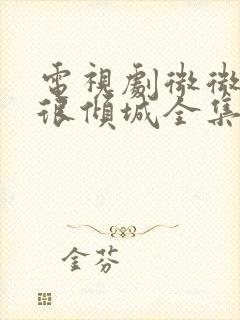 電視劇微微
很傾城全集
金芬